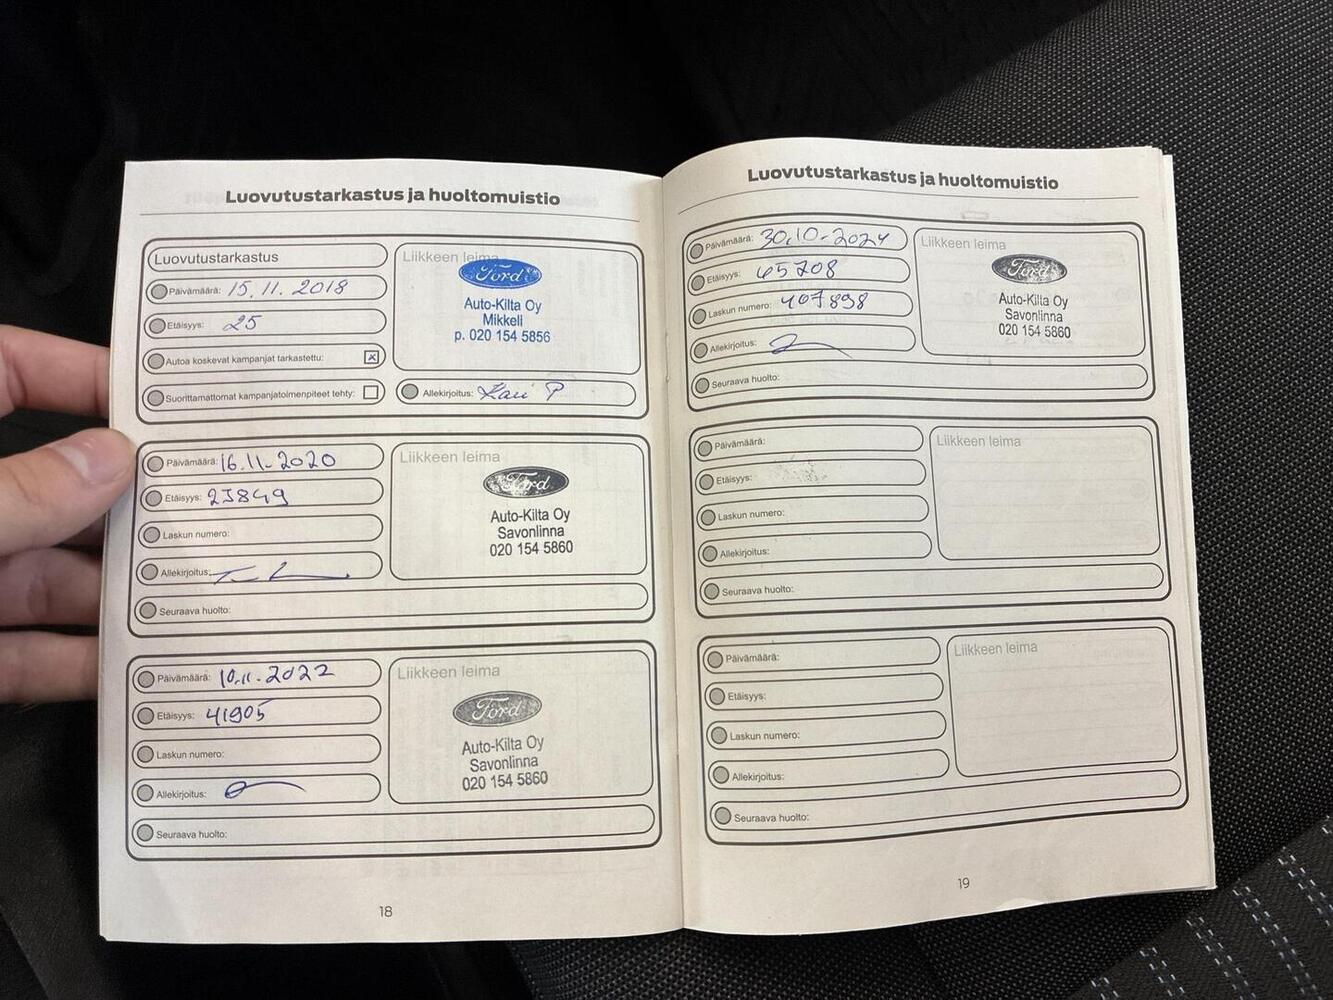 Luovutustarkastus ja huoltomuistio
Luovutustarkastus
Päivämäärä: 15.11.2018
Etäisyys: 25
Autoa koskevat kampanjat tarkastettu: x
Suorittamattomat kampanjatoimenpiteet tehty:
Liikkeen leima
Ford
Auto-Kilta Oy
Mikkeli
p. 020 154 5856
Allekirjoitus: Kari P
Päivämäärä: 16.11.2020
Etäisyys: 23849
Laskun numero:
Allekirjoitus:
Seuraava huolto:
Liikkeen leima
Ford
Auto-Kilta Oy
Savonlinna
020 154 5860
Päivämäärä: 10.11.2022
Etäisyys: 41905
Laskun numero:
Allekirjoitus:
Seuraava huolto:
Liikkeen leima
Ford
Auto-Kilta Oy
Savonlinna
020 154 5860
18
Luovutustarkastus ja huoltomuistio
Päivämäärä: 30.10-2024
Etäisyys: 65708
Laskun numero: 407898
Allekirjoitus:
Seuraava huolto:
Liikkeen leima
Ford
Auto-Kilta Oy
Savonlinna
020 154 5860
Päivämäärä:
Etäisyys:
Laskun numero:
Allekirjoitus:
Seuraava huolto:
Liikkeen leima
Päivämäärä:
Etäisyys:
Laskun numero:
Allekirjoitus:
Seuraava huolto:
Liikkeen leima
19